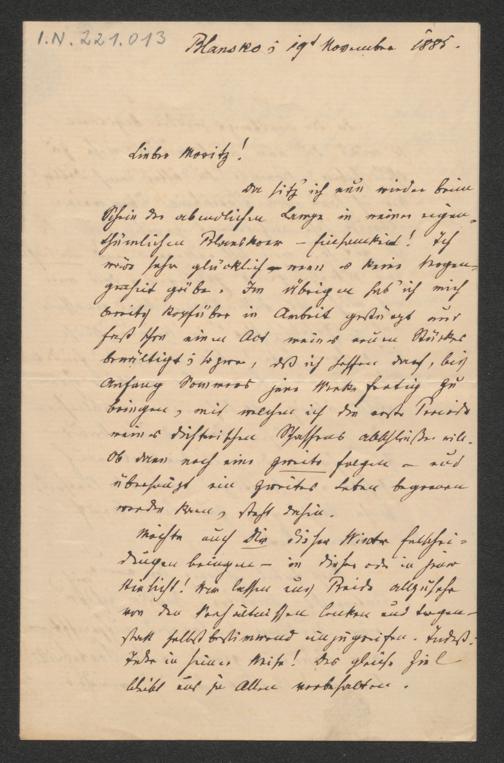 I.N. 221.013
Blansko, 19t November 1885.
Lieber Moritz!
Da sitz' ich nun wieder beim
Schein der abendlichen Lampe in meiner eigen-
thümlichen Blanskoer – Einsamkeit! Ich
wäre sehr glücklich – wenn es keine
gäbe. Im Übrigen hab' ich mich
bereits kopfüber in Arbeit gestürzt und
fast schon einen Act meines neuen Stückes
bewältigt; so zwar, daß ich hoffen darf, bis
Anfang Sommers jene Werke fertig zu
bringen, mit welchen ich die erste Periode
meines dichterischen Schaffens abschließen will.
Ob dann noch eine zweite folgen – und
überhaupt ein zweites Leben begonnen
werden kann, steht dahin.
Möchte auch Dir dieser Winter Entschei-
dungen bringen – in dieser oder in jener
Hinsicht! Wir lassen uns Beide allzusehr
von den Verhältnissen lenken und tragen –
statt selbstbestimmend einzugreifen. Indeß:
Jeder in seiner Weise! Das gleiche Ziel
bleibt uns ja Allen vorbehalten.